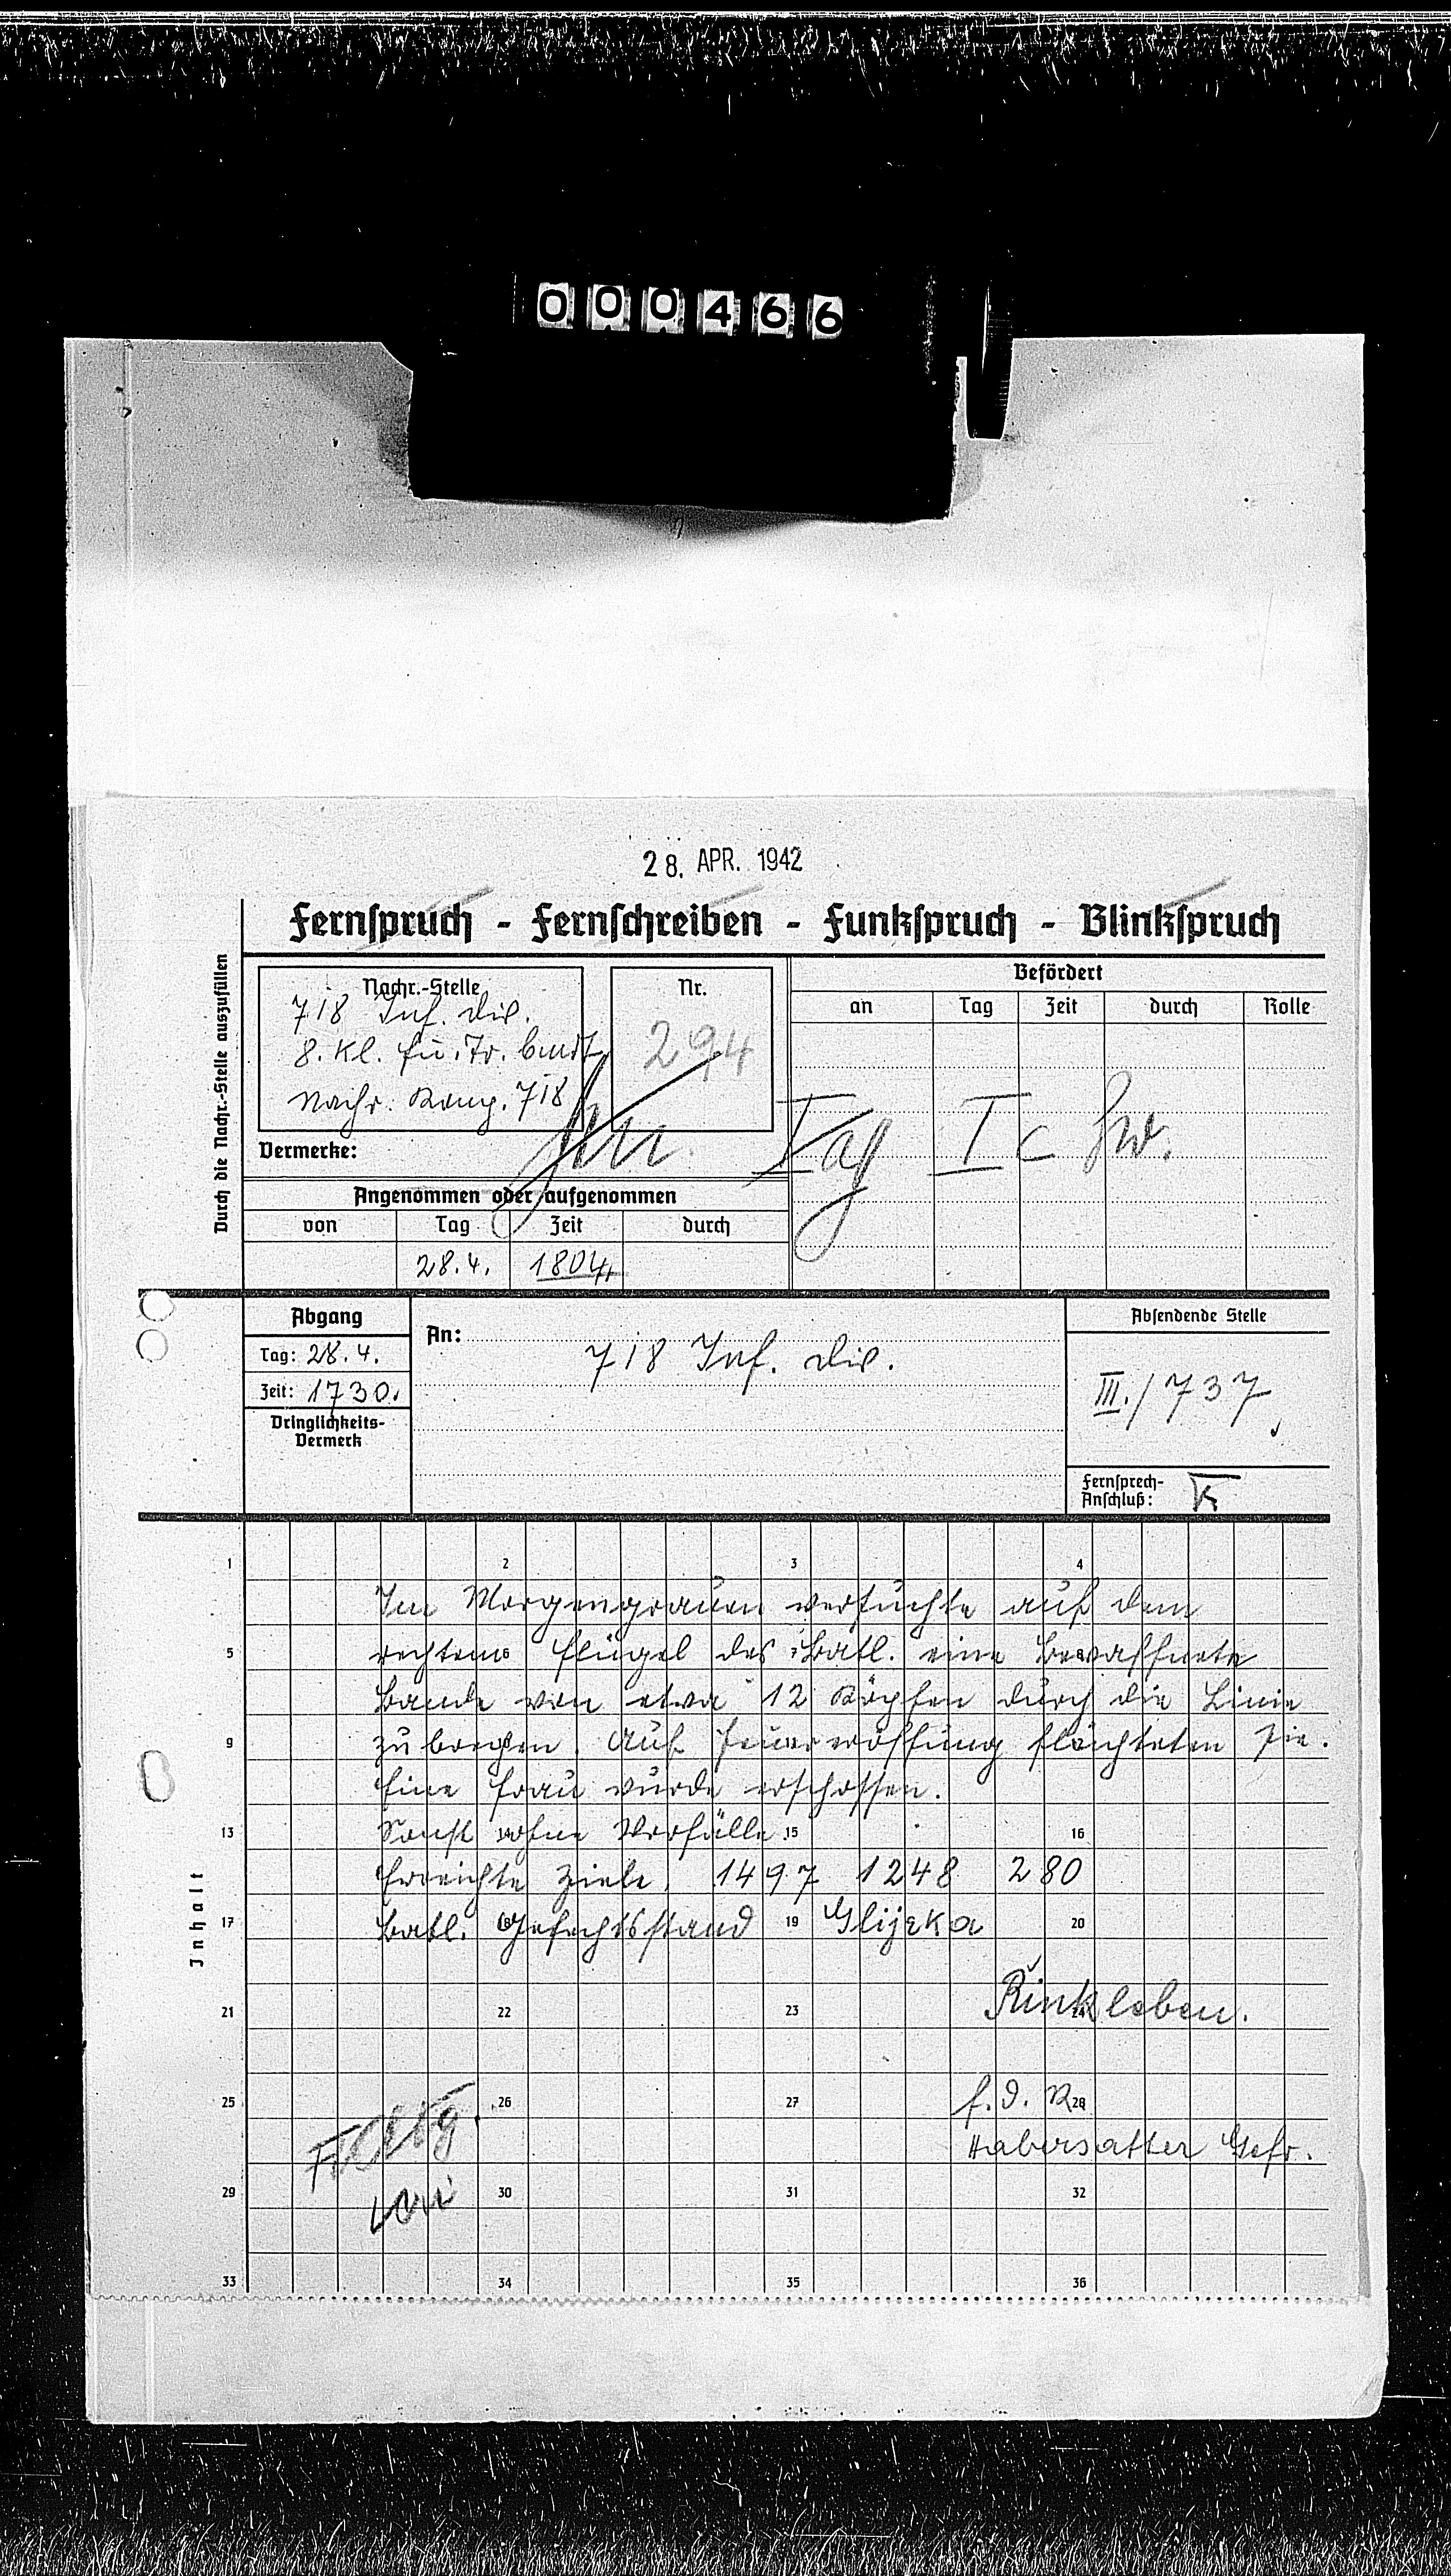 000466
28. APR. 1942
Fernspruch - Fernschreiben - Funkspruch - Blinkspruch
Durch die Nachr.-Stelle auszufüllen
Nachr.-Stelle
718 Inf. Div.
8. Kl. Fu. Tr.
Nachr. Komp. 718
Nr.
294
Befördert
an Tag Zeit durch Rolle
Vermerke:
Ia Ic
Angenommen oder aufgenommen
von Tag Zeit durch
28.4. 1804
Abgang
Tag: 28.4.
Zeit: 1730.
Dringlichkeits-
Vermerk
An:
718 Inf. Div.
Absendende Stelle
III./737
Fernsprech-
Anschluß:
Inhalt
1 2 3 4
Im Morgengrauen versuchte auf dem
5 rechten Flügel des Batl. eine bewaffnete
Bande von etwa 12 Köpfen durch die Linie
9 zu brechen. Auf Feuereröffnung flüchteten sie.
Eine Frau wurde erschossen.
13 Sonst 14 ohne Vorfälle. 15 16
Erreichte Ziele. 1497 1248 280
17 Batl. Gefechtsstand 19 Glijeka 20
21 22 23 24
Rinkleben.
25 26 27 28
f.d.R.
Habersatter Gefr.
29 30 31 32
33 34 35 36